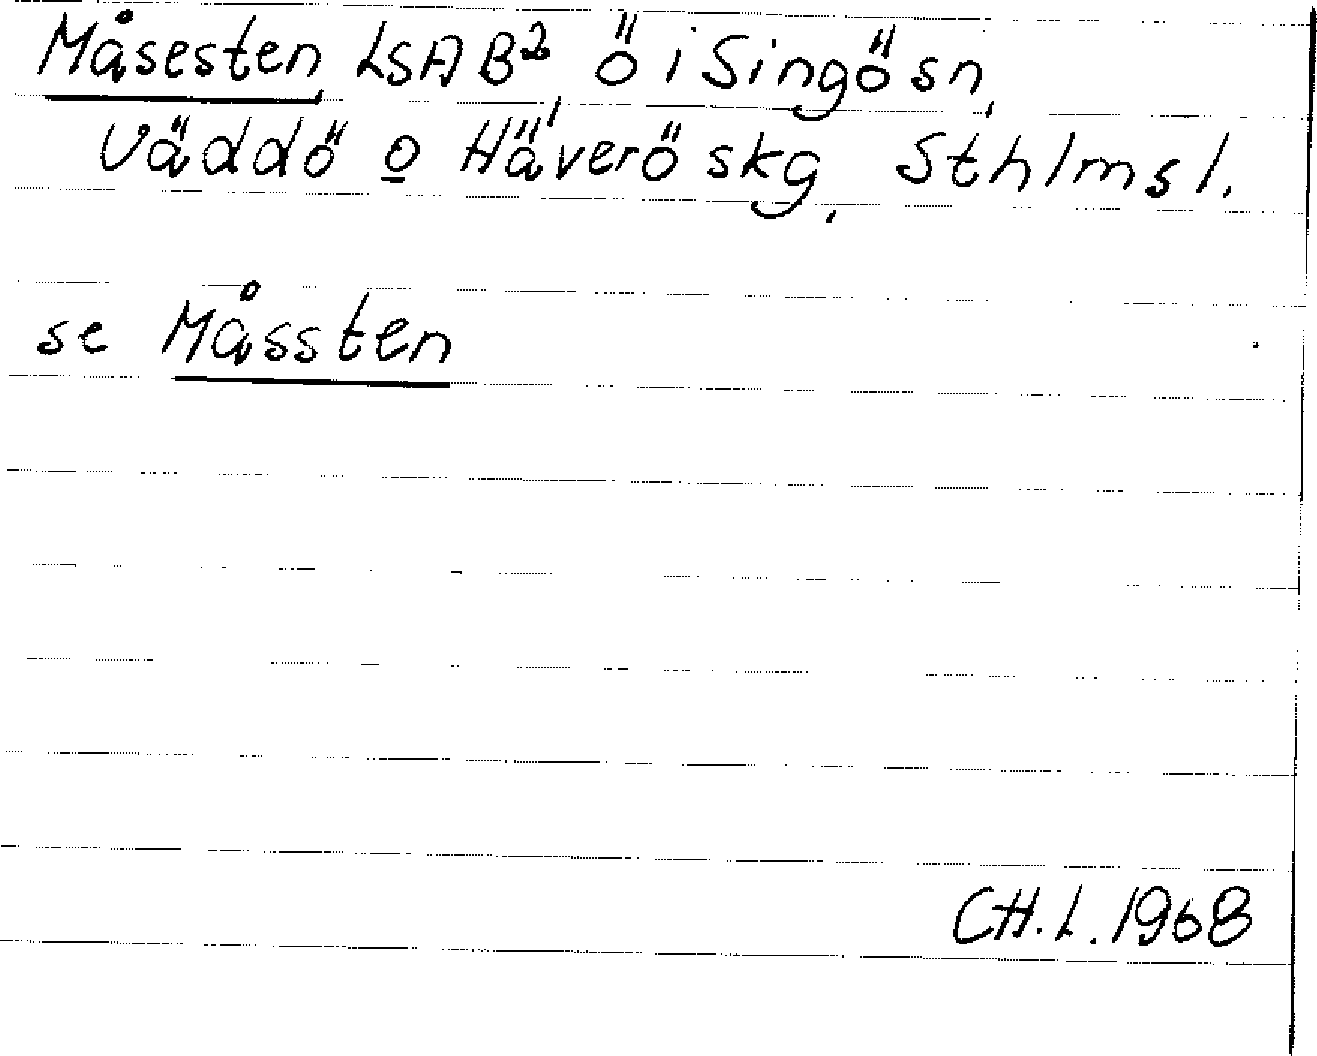 Måsesten LSA B² ö i Singö sn,
Väddö o Häverö skg, Sthlms l.
se Måssten
CH.L. 1968